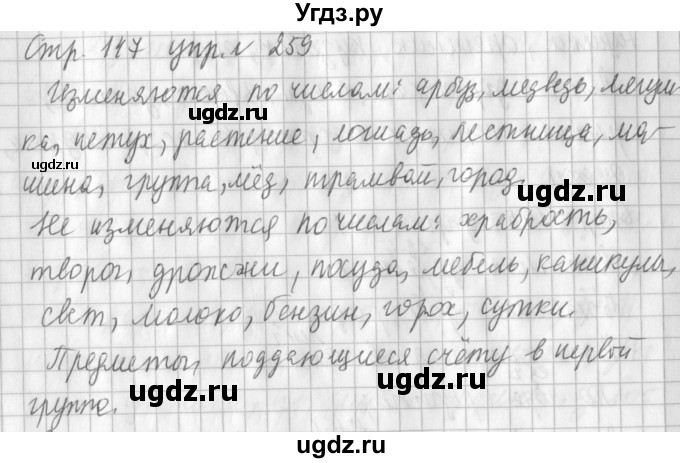 Угдз.ру
Стр. 147 упр. № 259
Изменяются по числам: арбуз, медведь, лягуш-
ка, петух, растение, лошадь, лестница, ма-
ugdz.ru
шина, группа, мёд, трамвай, город.
ugdz.ru
Не изменяются по числам: храбрость,
творог, дрожжи, посуда, мебель, каникулы,
свет, молоко, бензин, горох, сутки.
Предметы, поддающиеся счёту в первой
группе.
ugdz.ru
ugdz.ru
ugdz.ru
ugdz.ru